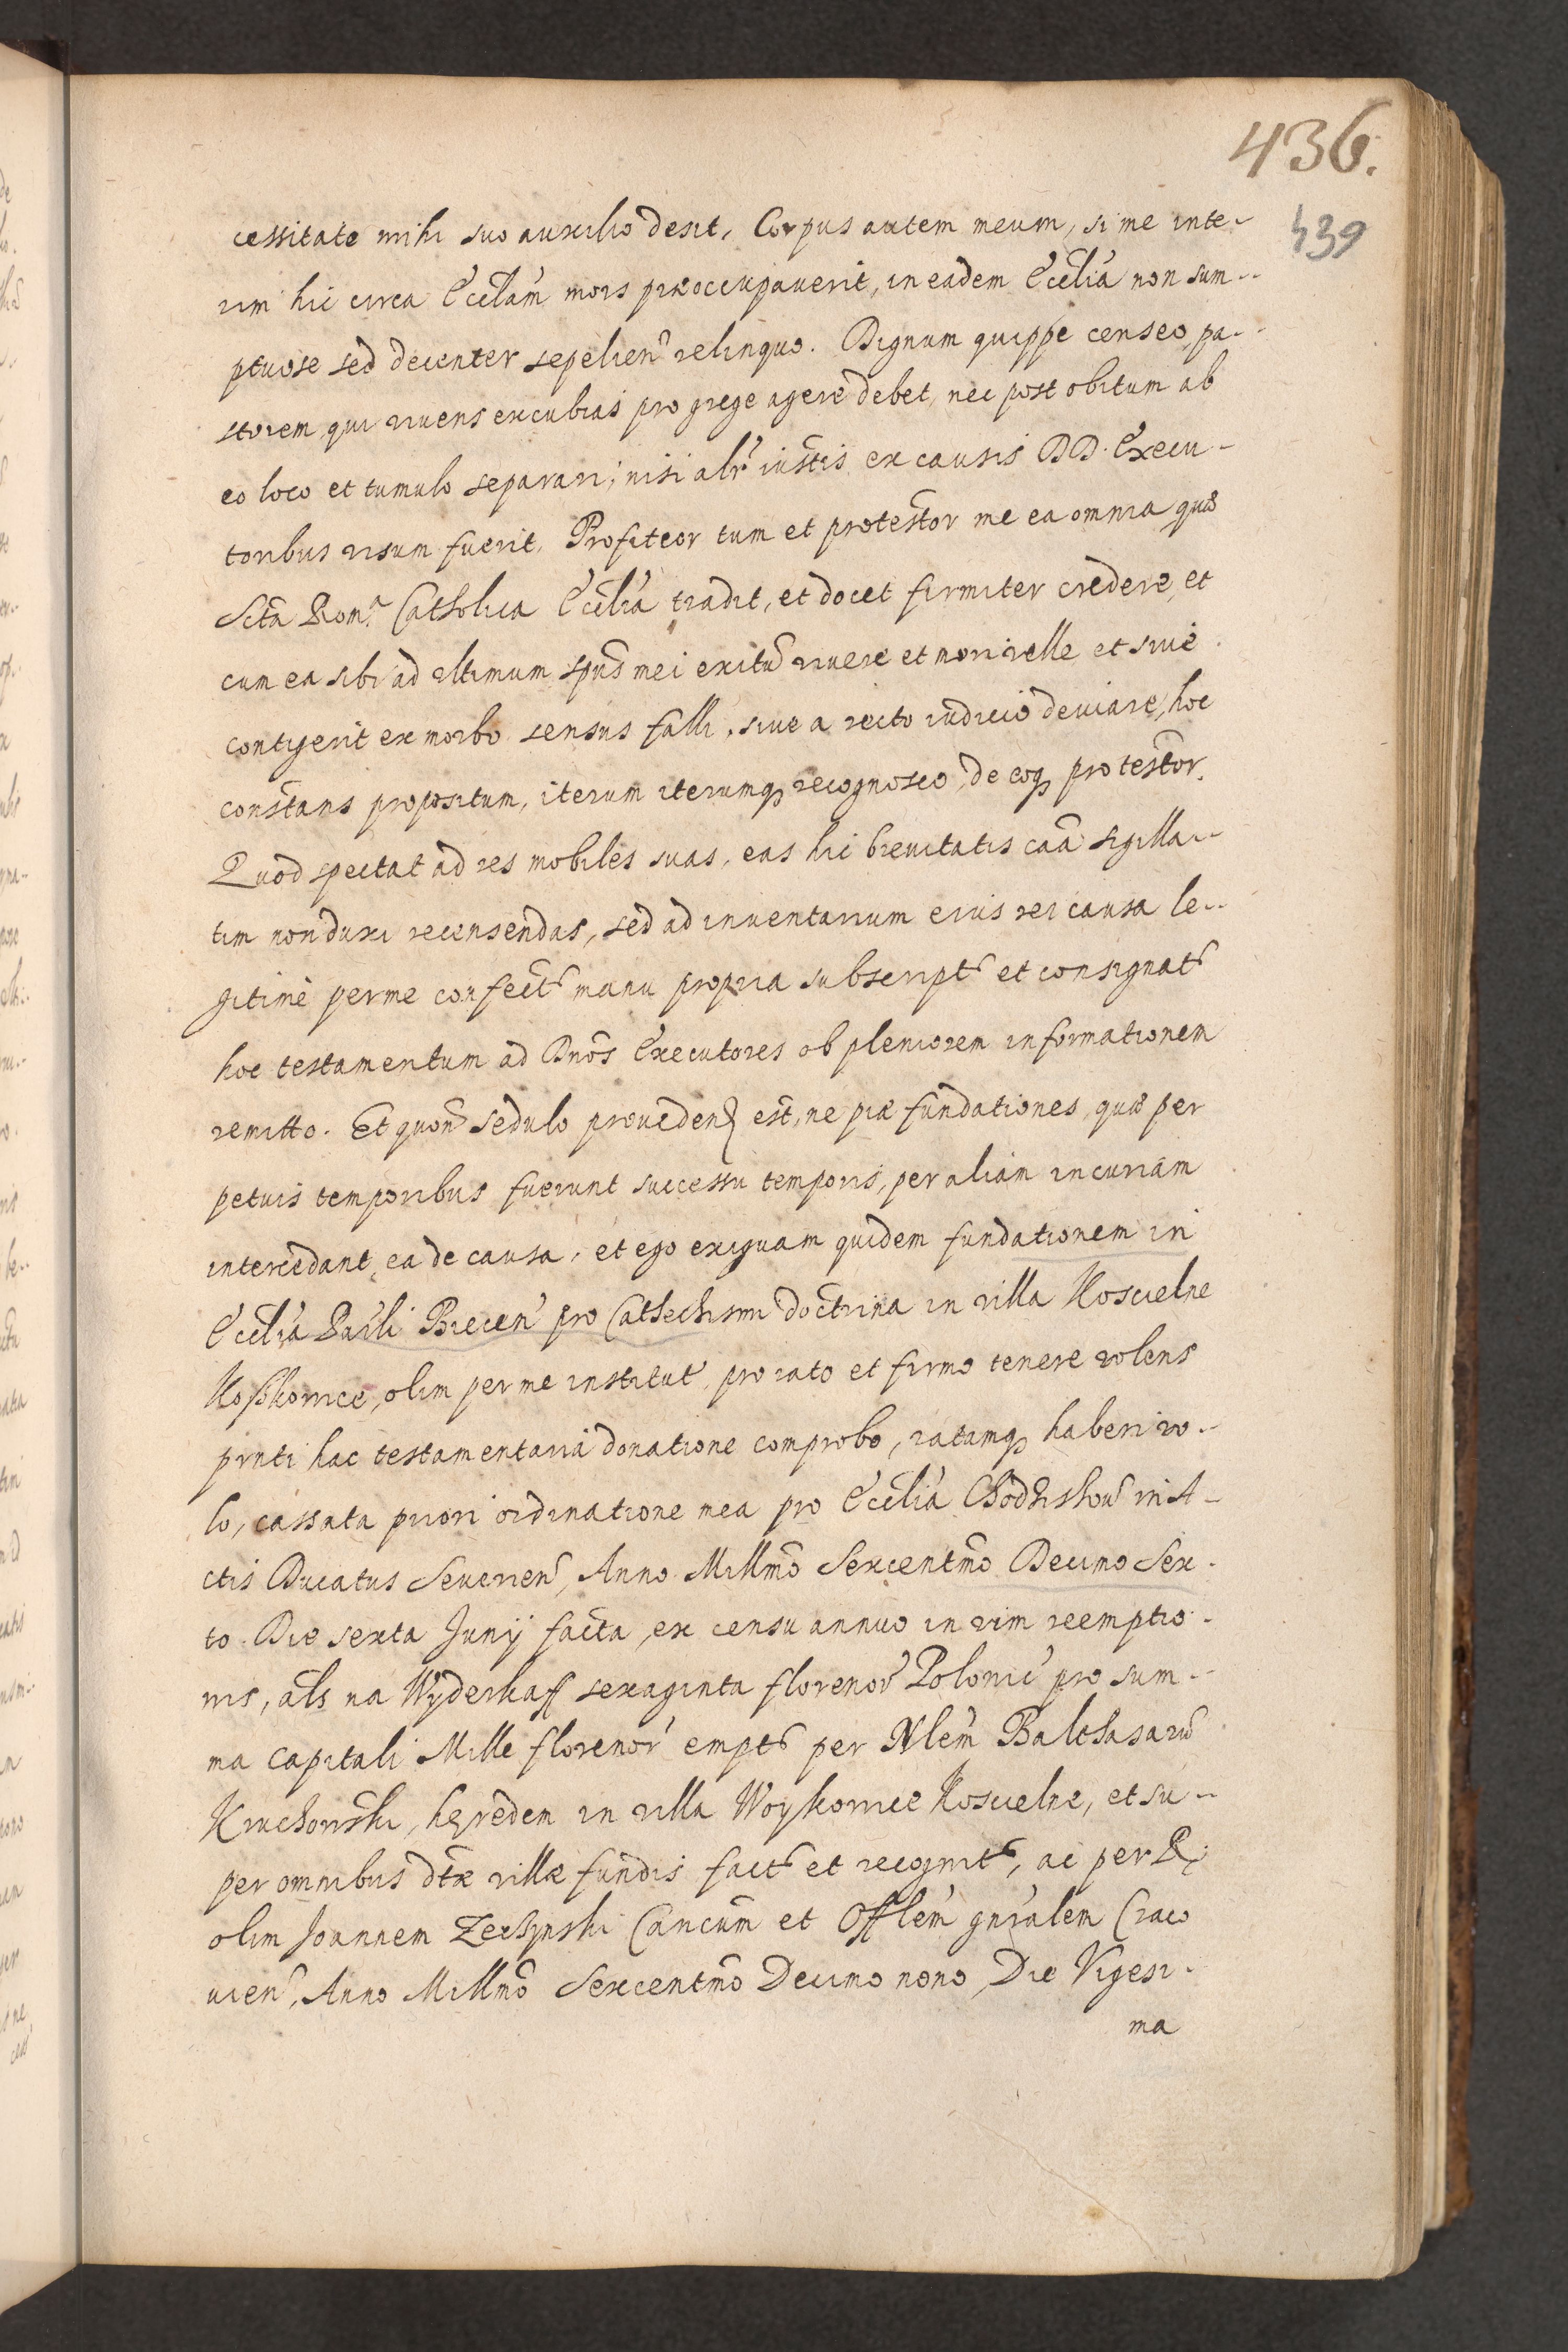 436.
439
cessitate mihi suo auxilio desit, Corpus autem meum, si me inte-
rim hic circa Ecclãm mors præoccupauerit, in eadem Ecclia non sum-
ptuose sed decenter sepelien relinquo. Dignum quippe censeo, pa-
storem qui viuens excubias pro grege agere debet, nec post obitum ab
eo loco et tumulo separari; nisi alr iustis ex causis DD. Execu-
toribus visum fuerit. Profiteor tum et protestor me ea omnia quæ
Scta Rom. Catholica Ecclia tradit, et docet firmiter credere, et
cum ea ad vltimum spũs mei exitũ viuere et mori velle et siue
contigerit ex morbo sensus falli, siue a recto iudicio deuiare, hoc
constans propositum, iterum iterumq recognosco, de eoq protestor.
Quod spectat ad res mobiles suas, eas hic breuitatis caã sigilla-
tim non duxi recensendas, sed ad inuentarium eius rei causa le-
gitimè per me confect manu propria subscript et consignat
hoc testamentum ad Dnõs Executores ob pleniorem informationem
remitto. Et quon sedulo prouiden est, ne piæ fundationes, quæ per
petuis temporibus fuerunt successu temporis, per aliam incuriam
intercedant, ea de causa, et ego exiguam quidem fundationem in
Ecclia Biecen pro Cathechismi doctrina in villa Koscielne
olim per me institut, pro rato et firmo tenere volens
prnti hac testamentaria donatione comprobo, ratamq haberi vo-
lo, cassata priori ordinatione mea pro Ecclia in A-
ctis Ducatus Seuerien, Anno Millmo Sexcentmo Decimo Sex-
to Die sexta Junij facta, ex censu annuo in vim reemptio-
nis, als na Wyderkaff sexaginta florenor Polonic pro sum-
ma capitali Mille florenor empt per Nlem Balthasarũ
heredem in villa Woykowice Koscielne, et su-
per omnibus dtæ villæ fundis fact et recognit, ac per R.
olim Joannem Cancum et Offlem gnralem Craco
uien, Anno Millmo Sexcentmo Decimo nono, Die Vigesi-
ma